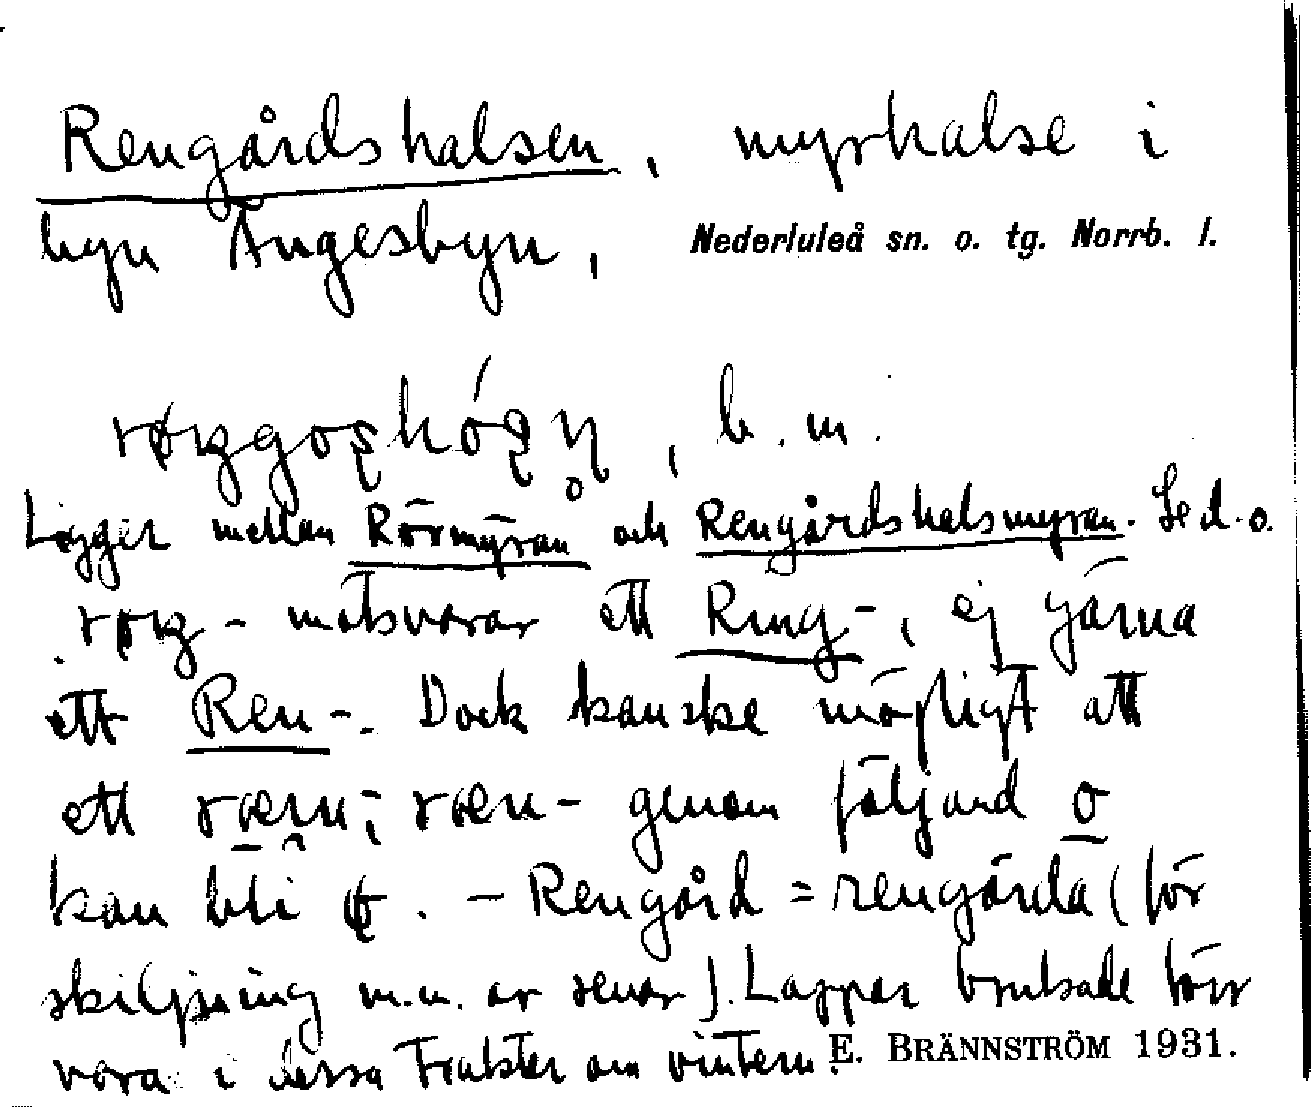 Rengårdshalsen, myrhalse i
byn Ängesbyn, Nederluleå sn. o. tg. Norrb. l.
b. m.
Ligger mellan Rörmyran och Rengårdshalsmyran. Se d. o.
motsvarar ett Ring-, ej gärna
ett Ren-. Dock kanske möjligt att
ett genom följand o
kan bli . – Rengård = rengärda (för
skiljning m.m. av renar). Lappar brukade förr
vara i dessa trakter om vintern. E. BRÄNNSTRÖM 1931.